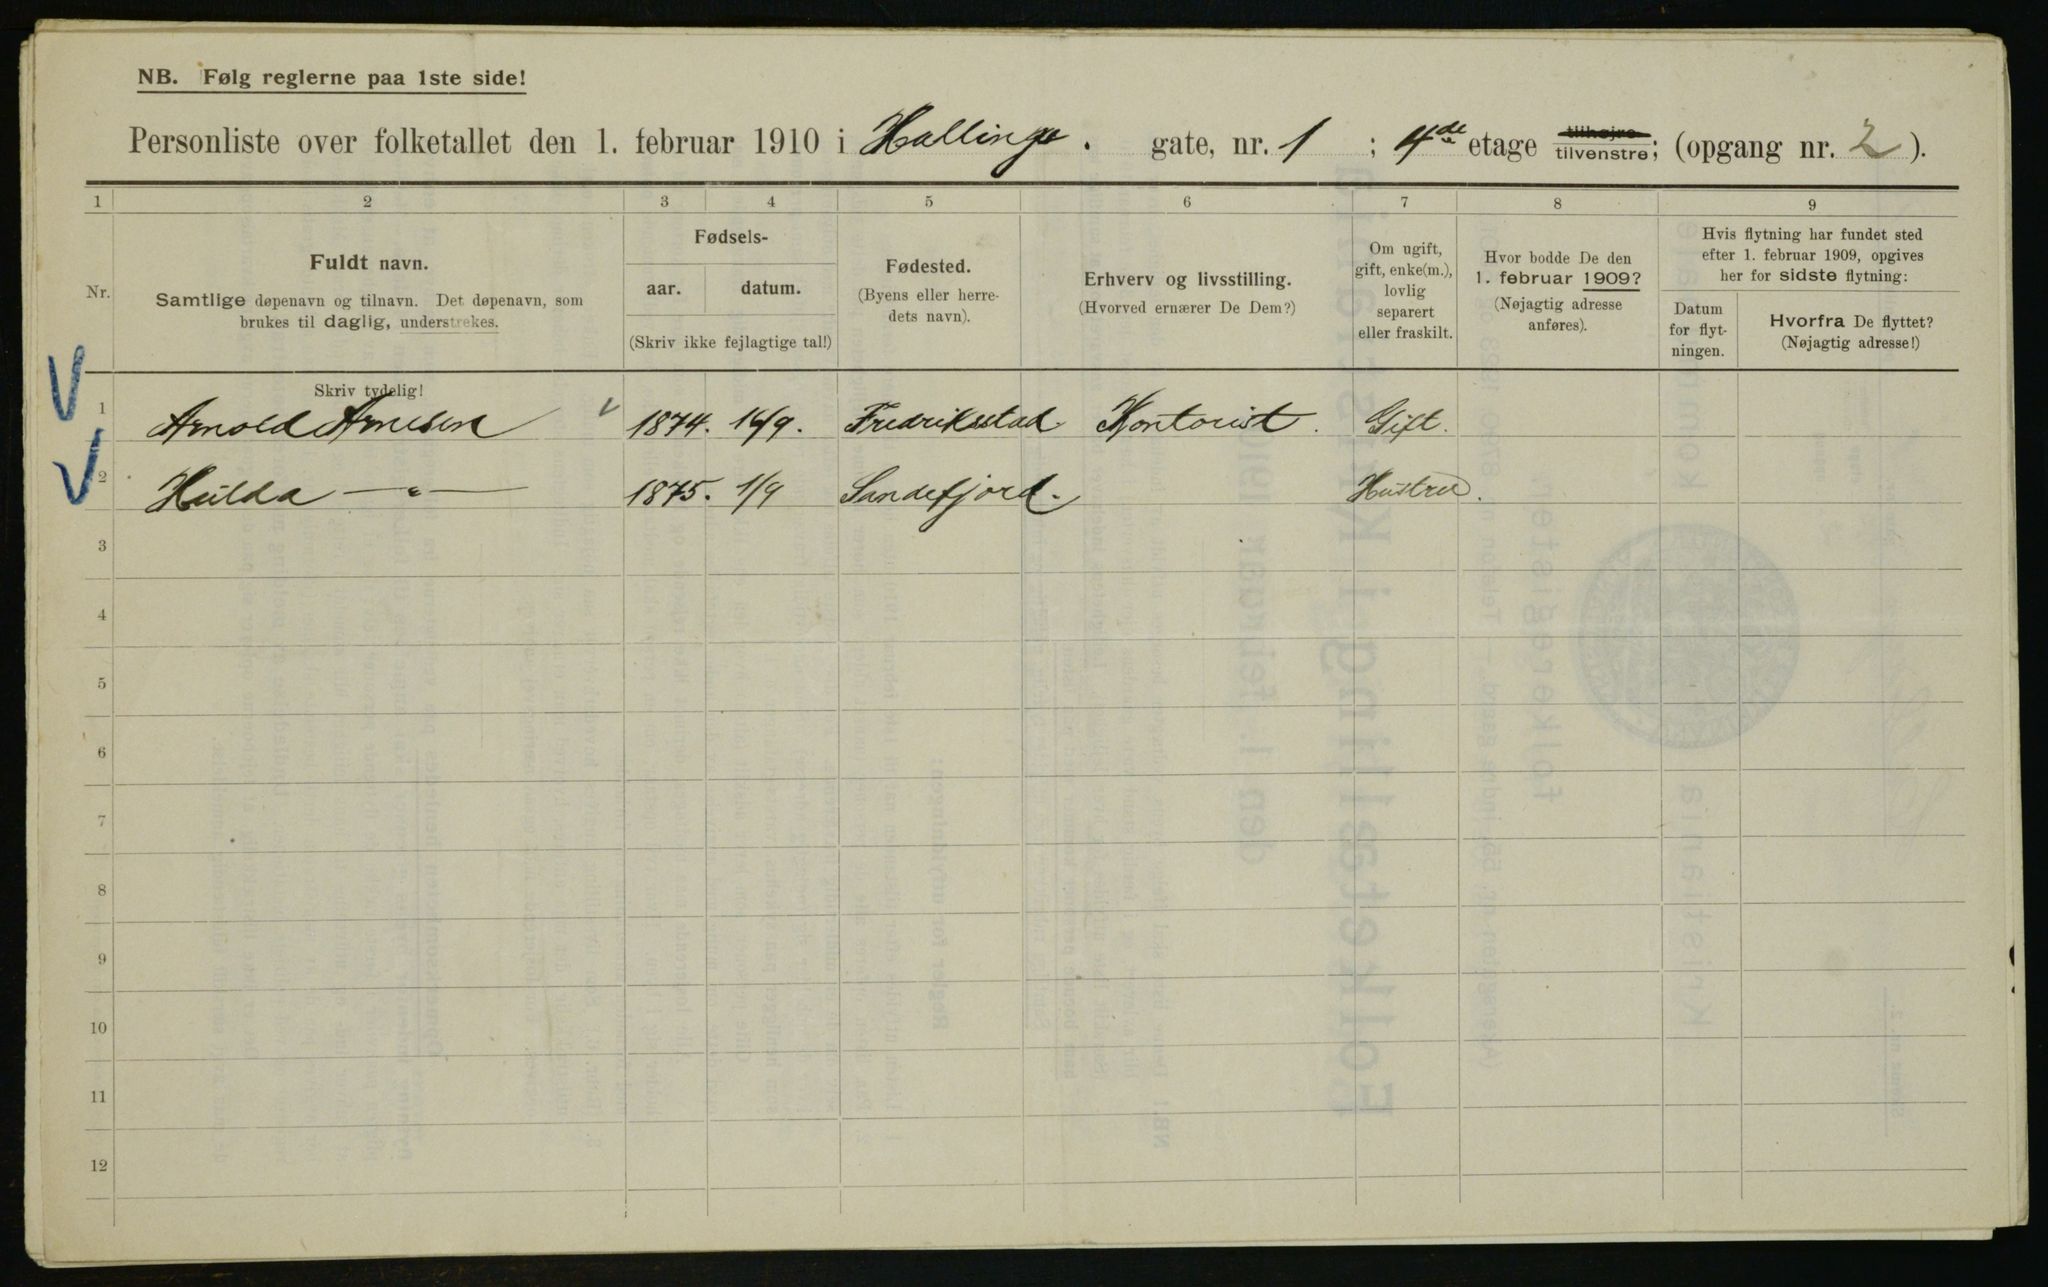 NB. Følg reglerne paa 1ste side!
Personliste over folketallet den 1. februar 1910 i Hallings. gate, nr. 1 ; 4de etage tilhøjre tilvenstre; (opgang nr. 2 ).
1 2 3 4 5 6 7 8 9
Nr.
Fuldt navn.
Samtlige døpenavn og tilnavn. Det døpenavn, som
brukes til daglig, understrekes.
Skriv tydelig!
Fødsels-
aar. datum.
(Skriv ikke fejlagtige tal!)
Fødested.
(Byens eller herre-
dets navn).
Erhverv og livsstilling.
(Hvorved ernærer De Dem?)
Om ugift,
gift, enke(m.),
lovlig
separert
eller fraskilt.
Hvor bodde De den
1. februar 1909?
(Nøjagtig adresse
anføres).
Hvis flytning har fundet sted
efter 1. februar 1909, opgives
her for sidste flytning:
Datum
for flyt-
ningen.
Hvorfra De flyttet?
(Nøjagtig adresse!)
1 Arnold Arnesen 1874. Fredriksstad Kontorist. Gift.
2 Hulda —"— 1875. 1/9 Sandefjord. Hustru.
3
4
5
6
7
8
9
10
11
12